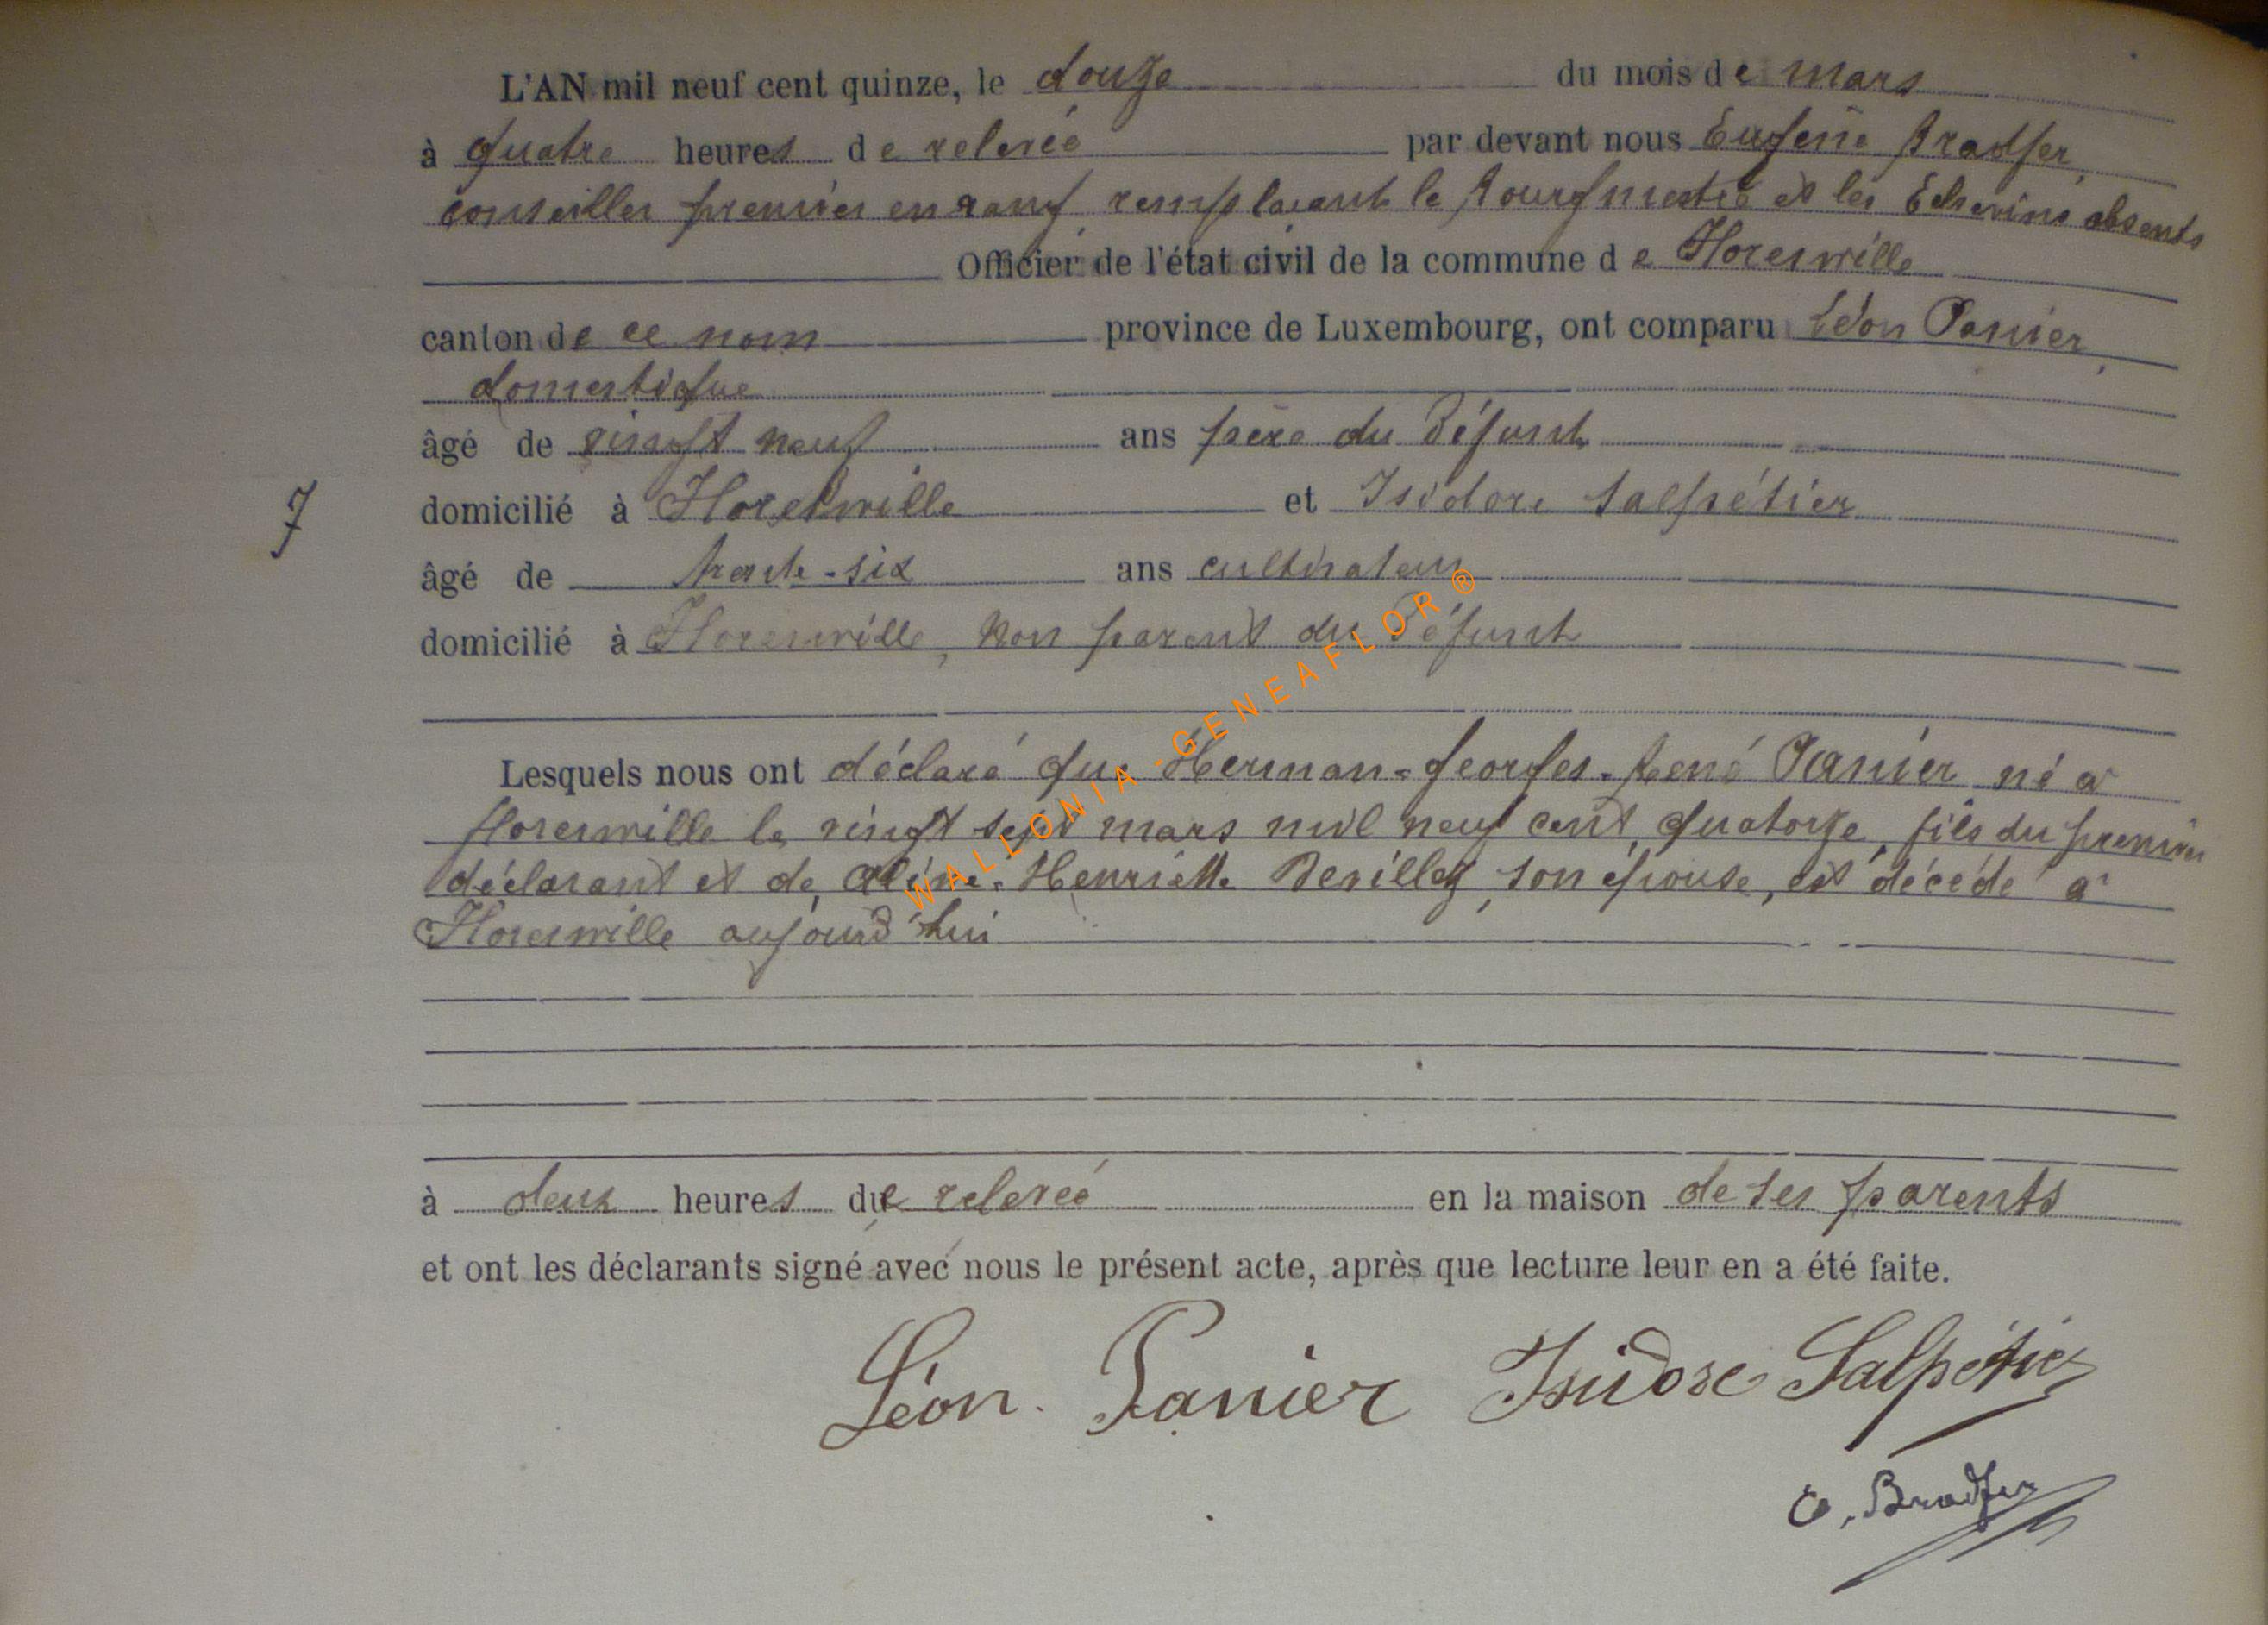 L'AN mil neuf cent quinze, le douze du mois de mars
à quatre heures de relevée par devant nous Eugène Bradfer,
conseiller premier en rang, remplaçant le Bourgmestre et les Echevins absents
Officier de l'état civil de la commune de Florenville
canton de ce nom province de Luxembourg, ont comparu Léon Panier,
domestique
âgé de vingt neuf ans père du défunt
domicilié à Florenville et Isidore Salpétier
7
âgé de trente-six ans cultivateur
domicilié à Florenville, non parent du défunt
Lesquels nous ont déclaré que Herman-Georges-René Panier né à
Florenville le vingt sept mars mil neuf cent quatorze, fils du premier
déclarant et de Aline-Henriette Devillez, son épouse, est décédé à
Florenville aujourd'hui
WALLONIA-GENEAFLOR®
à deux heures de relevée en la maison de ses parents
et ont les déclarants signé avec nous le présent acte, après que lecture leur en a été faite.
Léon. Panier Isidore Salpétier
E. Bradfer